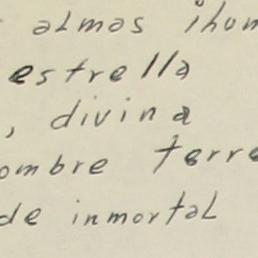 almas ihum
estrella
, divina
ombre terre
de inmortal